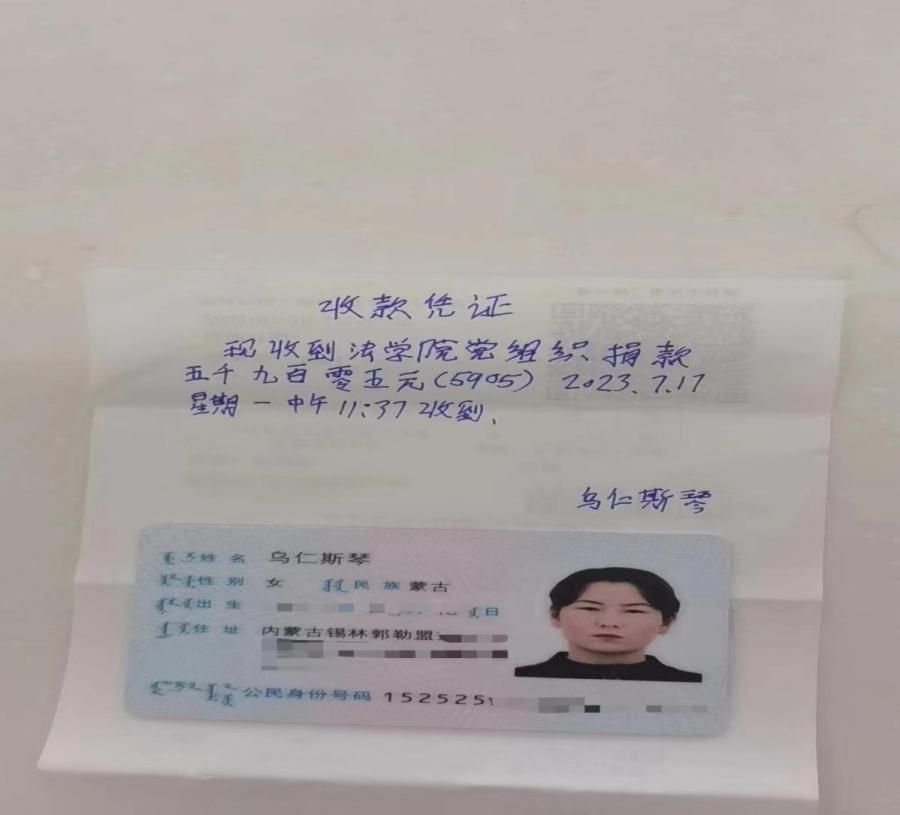 收款凭证
现收到法学院党组织捐款
五千九百零五元(5905) 2023.7.17
星期一中午11:37收到.
乌仁斯琴
姓名 乌仁斯琴
性别 女 民族 蒙古
出生 日
住址 内蒙古锡林郭勒盟
公民身份号码 152525